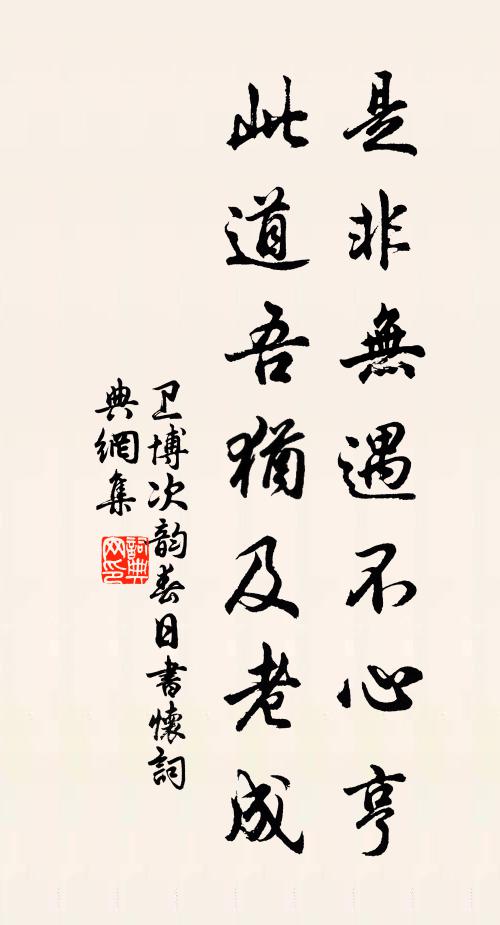 是非無遇不心亨
此道吾猶及老成
卫博次韵春日書懷詞
典網集
詞典
网印